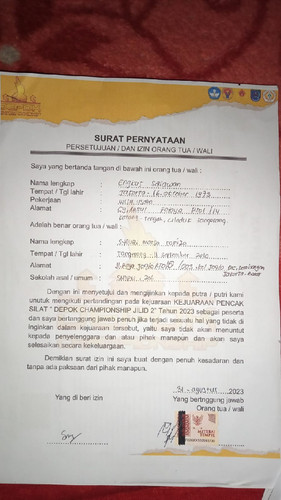 SURAT PERNYATAAN
PERSETUJUAN / DAN IZIN ORANG TUA / WALI
Saya yang bertanda tangan di bawah ini orang tua / wali :
Nama lengkap : setiawan
Tempat / Tgl lahir : Jakarta, 16 oktober 1973
Pekerjaan :
Alamat :
Adelah benar orang tua / wali :
Nama lengkap :
Tempat / Tgl lahir : Tangerang, 9 september 2010
Alamat :
Sekolah asal / umum :
Dengan ini menyetujui dan mengijinkan kepada putra / putri kami
unutuk mengikuti pertandingan pada kejuaraan KEJUARAAN PENCAK
SILAT " DEPOK CHAMPIONSHIP JILID 2" Tahun 2023 sebagai peserta
dan saya bertanggung jawab penuh jika terjadi sesuatu hal yang tidak di
inginkan dalam kejuaraan tersebut, yaitu saya tidak akan menuntut
kepada penyelenggara dan atau pihak manapun dan akan saya
selesaikan secara kekeluargaan.
Demikian surat izin ini saya buat dengan penuh kesadaran dan
tanpa ada paksaan dari pihak manapun.
31 - agustus 2023
Yang di beri izin
Yang bertnggung jawab
Orang tua / wali
METERAI
TEMPEL